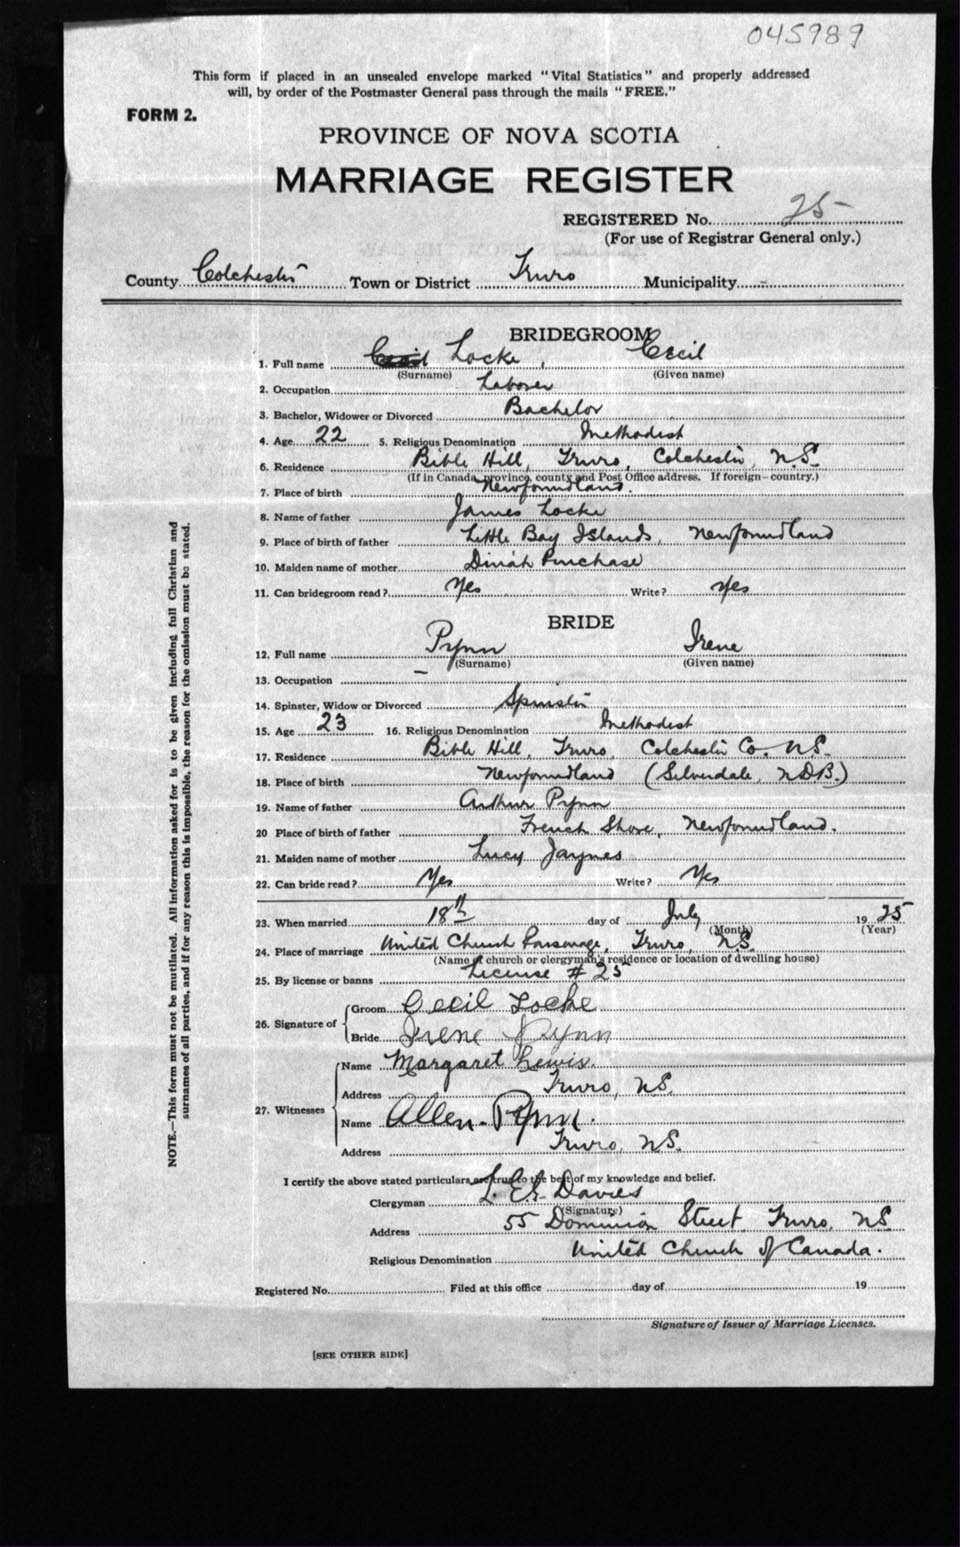 045989
This form if placed in an unsealed envelope marked "Vital Statistics" and properly addressed
will, by order of the Postmaster General pass through the mails "FREE."
FORM 2.
PROVINCE OF NOVA SCOTIA
MARRIAGE REGISTER
REGISTERED No. 25
(For use of Registrar General only.)
County Colchester Town or District Truro Municipality
BRIDEGROOM
1. Full name Locke, Cecil
(Surname) (Given name)
2. Occupation Laborer
3. Bachelor, Widower or Divorced Bachelor
4. Age 22 5. Religious Denomination Methodist
6. Residence Bible Hill, Truro, Colchester, N.S.
(If in Canada, province, county and Post Office address. If foreign—country.)
7. Place of birth Newfoundland.
8. Name of father James Locke
9. Place of birth of father Little Bay Islands, Newfoundland
10. Maiden name of mother Dinah Purchase
11. Can bridegroom read? Yes Write? Yes
BRIDE
12. Full name Pynn Irene
(Surname) (Given name)
13. Occupation –
14. Spinster, Widow or Divorced Spinster
15. Age 23 16. Religious Denomination Methodist
17. Residence Bible Hill, Truro, Colchester Co. N.S.
18. Place of birth Newfoundland (Silverdale, N.D.B.)
19. Name of father Arthur Pynn
20 Place of birth of father French Shore, Newfoundland.
21. Maiden name of mother Lucy Jaynes
22. Can bride read? Yes Write? Yes
23. When married 18th day of July 1925
(Month) (Year)
24. Place of marriage United Church Parsonage, Truro, N.S.
(Name of church or clergyman's residence or location of dwelling house)
25. By license or banns License # 25
26. Signature of Groom Cecil Locke
Bride Irene Pynn
27. Witnesses Name Margaret Lewis.
Address Truro, N.S.
Name Allen Pynn.
Address Truro, N.S.
I certify the above stated particulars are true to the best of my knowledge and belief.
Clergyman Davies
(Signature)
Address 55 Dominion Street, Truro, N.S.
Religious Denomination United Church of Canada.
Registered No. Filed at this office day of 19
Signature of Issuer of Marriage Licenses.
[SEE OTHER SIDE]
NOTE.—This form must not be mutilated. All information asked for is to be given including full Christian and
surnames of all parties, and if for any reason this is impossible, the reason for the omission must be stated.